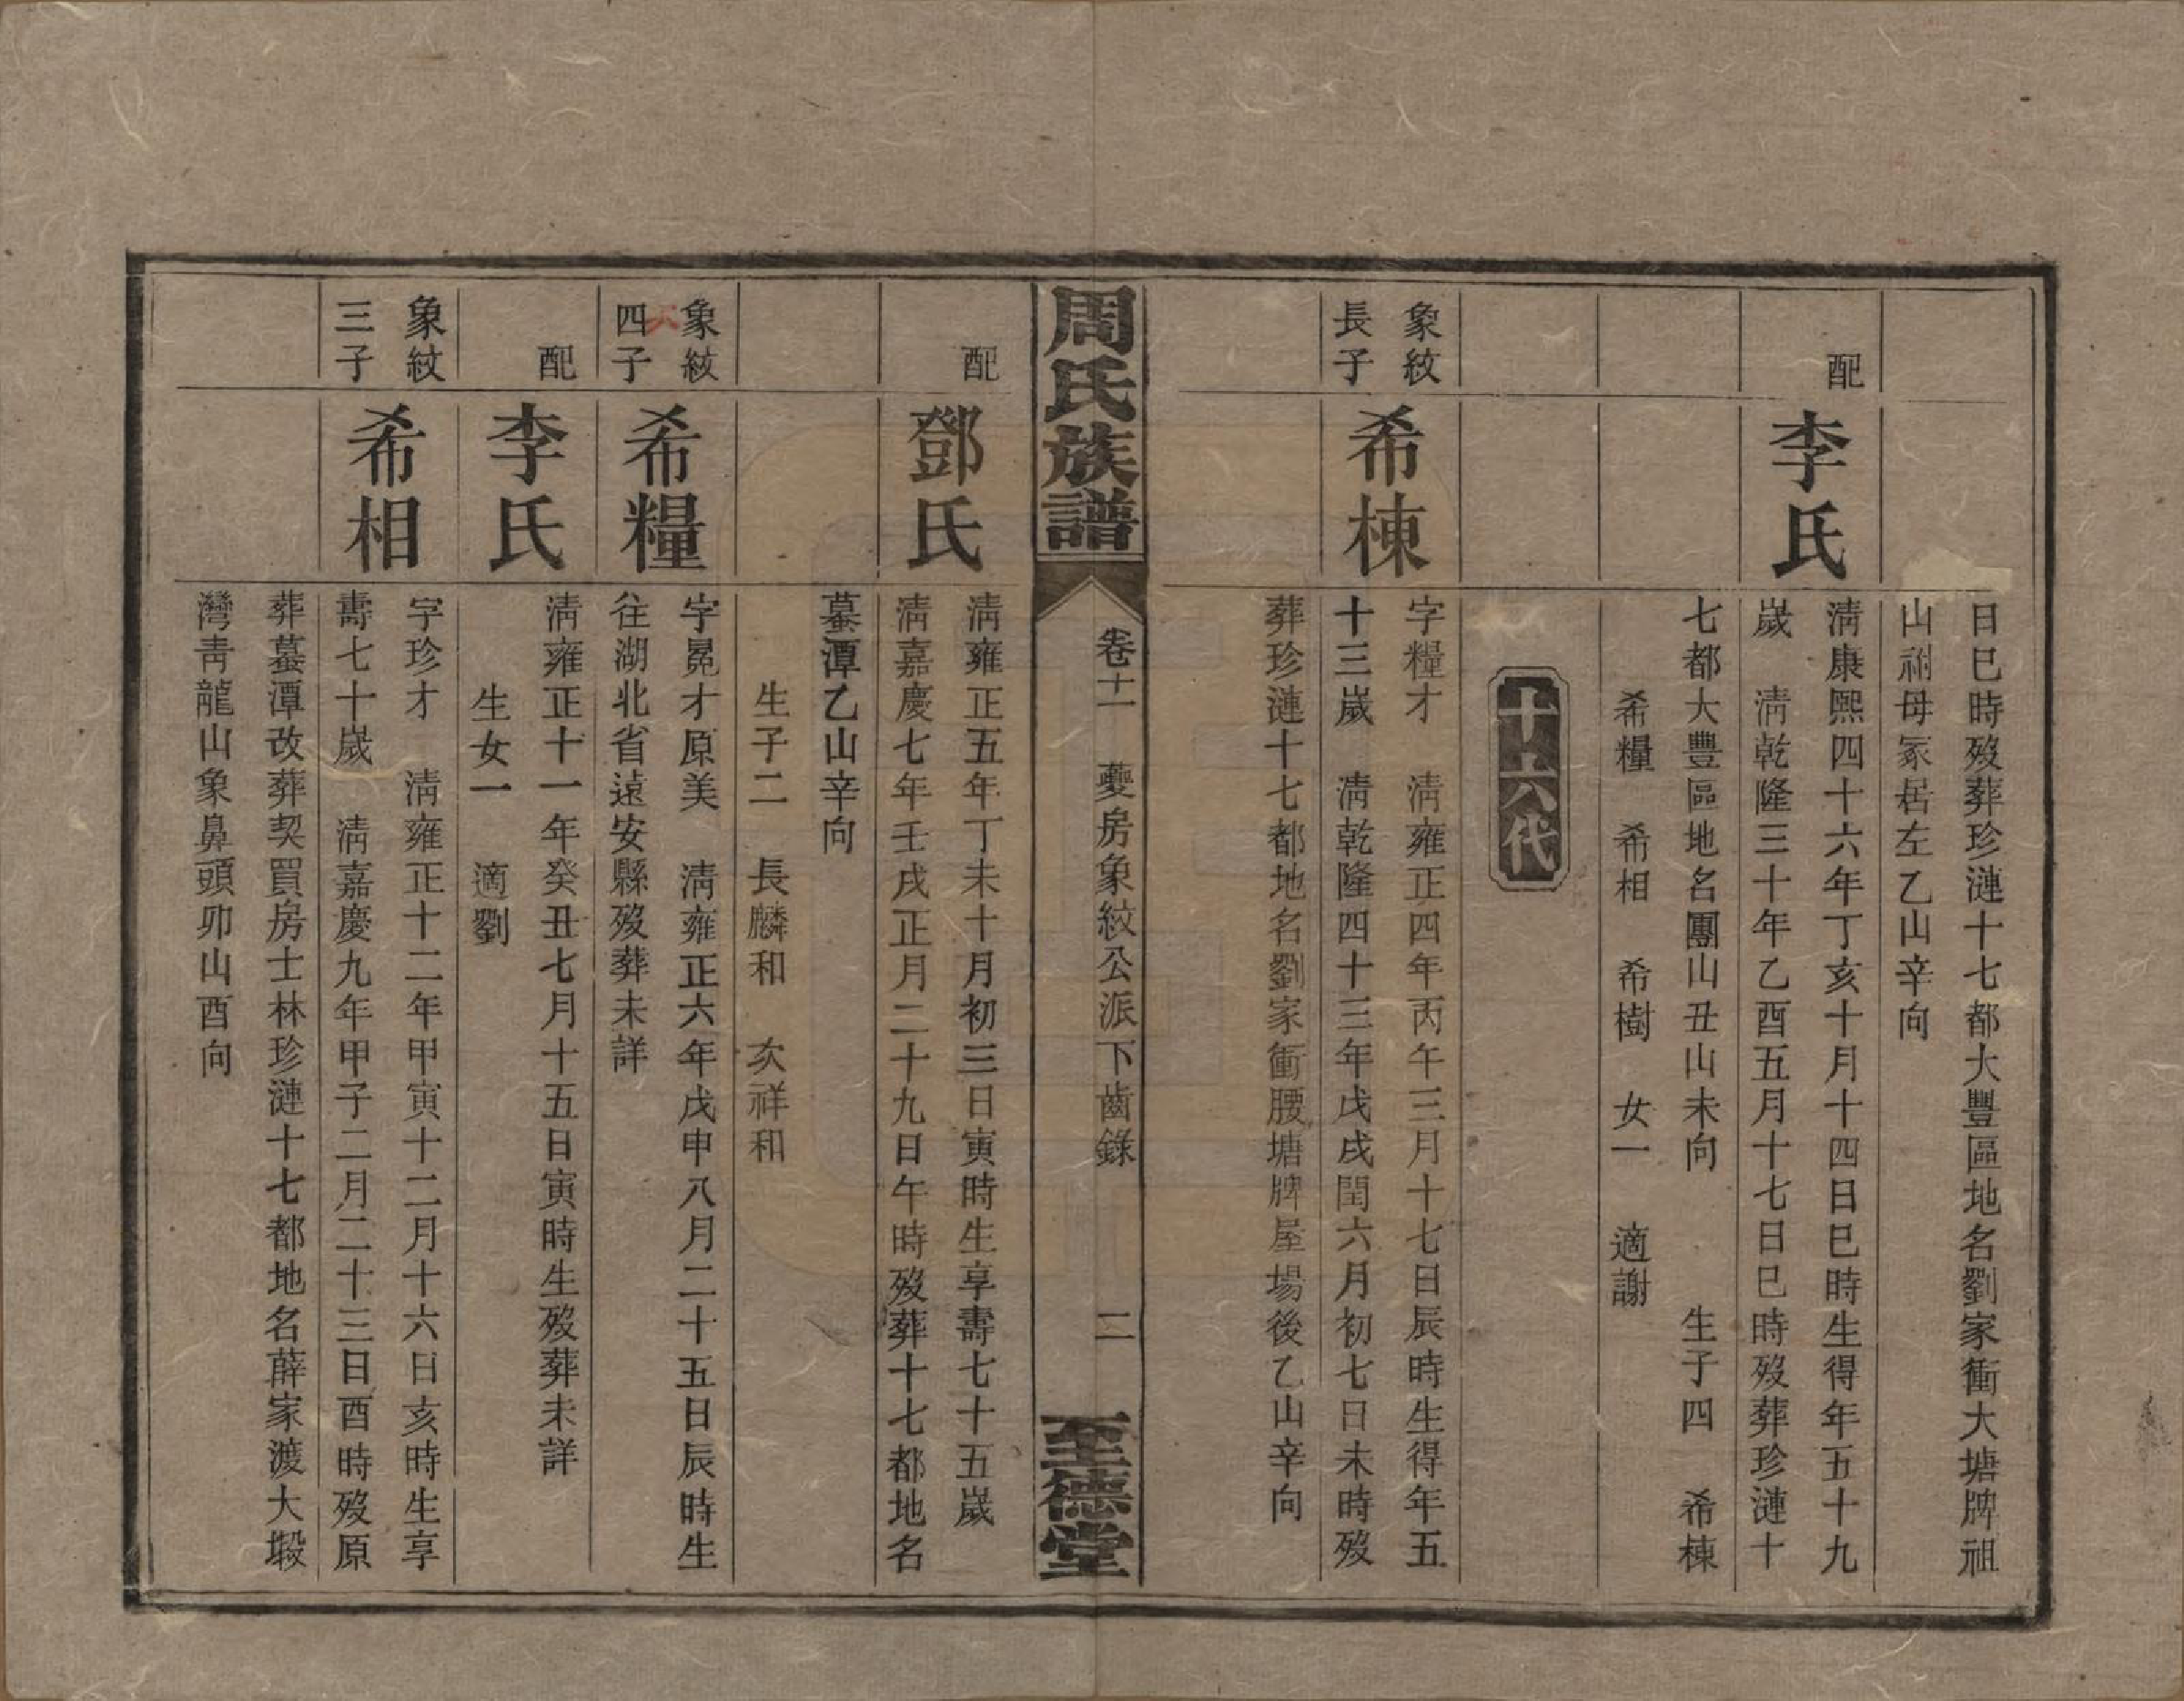 日巳時歿葬珍漣十七都大豐區地名劉家衝大塘牌祖
山祔母冢居左乙山辛向
配
李氏
淸康熙四十六年丁亥十月十四日巳時生得年五十九
歲　淸乾隆三十年乙酉五月十七日巳時歿葬珍漣十
七都大豐區地名團山丑山未向　生子四　希棟
希糧　希相　希樹　女一　適謝
十六代
象紋
長子
希棟
字糧才　淸雍正四年丙午三月十七日辰時生得年五
十三歲　淸乾隆四十三年戊戌閏六月初七日未時歿
葬珍漣十七都地名劉家衝腰塘牌屋場後乙山辛向
周氏族譜
卷十一　夔房象紋公派下齒錄　二
至德堂
配
鄧氏
淸雍正五年丁未十月初三日寅時生享壽七十五歲
淸嘉慶七年壬戌正月二十九日午時歿葬十七都地名
墓潭乙山辛向
生子二　長麟和　次祥和
象紋
四子
希糧
字冕才原美　淸雍正六年戊申八月二十五日辰時生
往湖北省遠安縣歿葬未詳
配
李氏
淸雍正十一年癸丑七月十五日寅時生歿葬未詳
生女一　適劉
象紋
三子
希相
字珍才　淸雍正十二年甲寅十二月十六日亥時生享
壽七十歲　淸嘉慶九年甲子二月二十三日酉時歿原
葬墓潭改葬契買房士林珍漣十七都地名薛家渡大塅
灣靑龍山象鼻頭卯山酉向